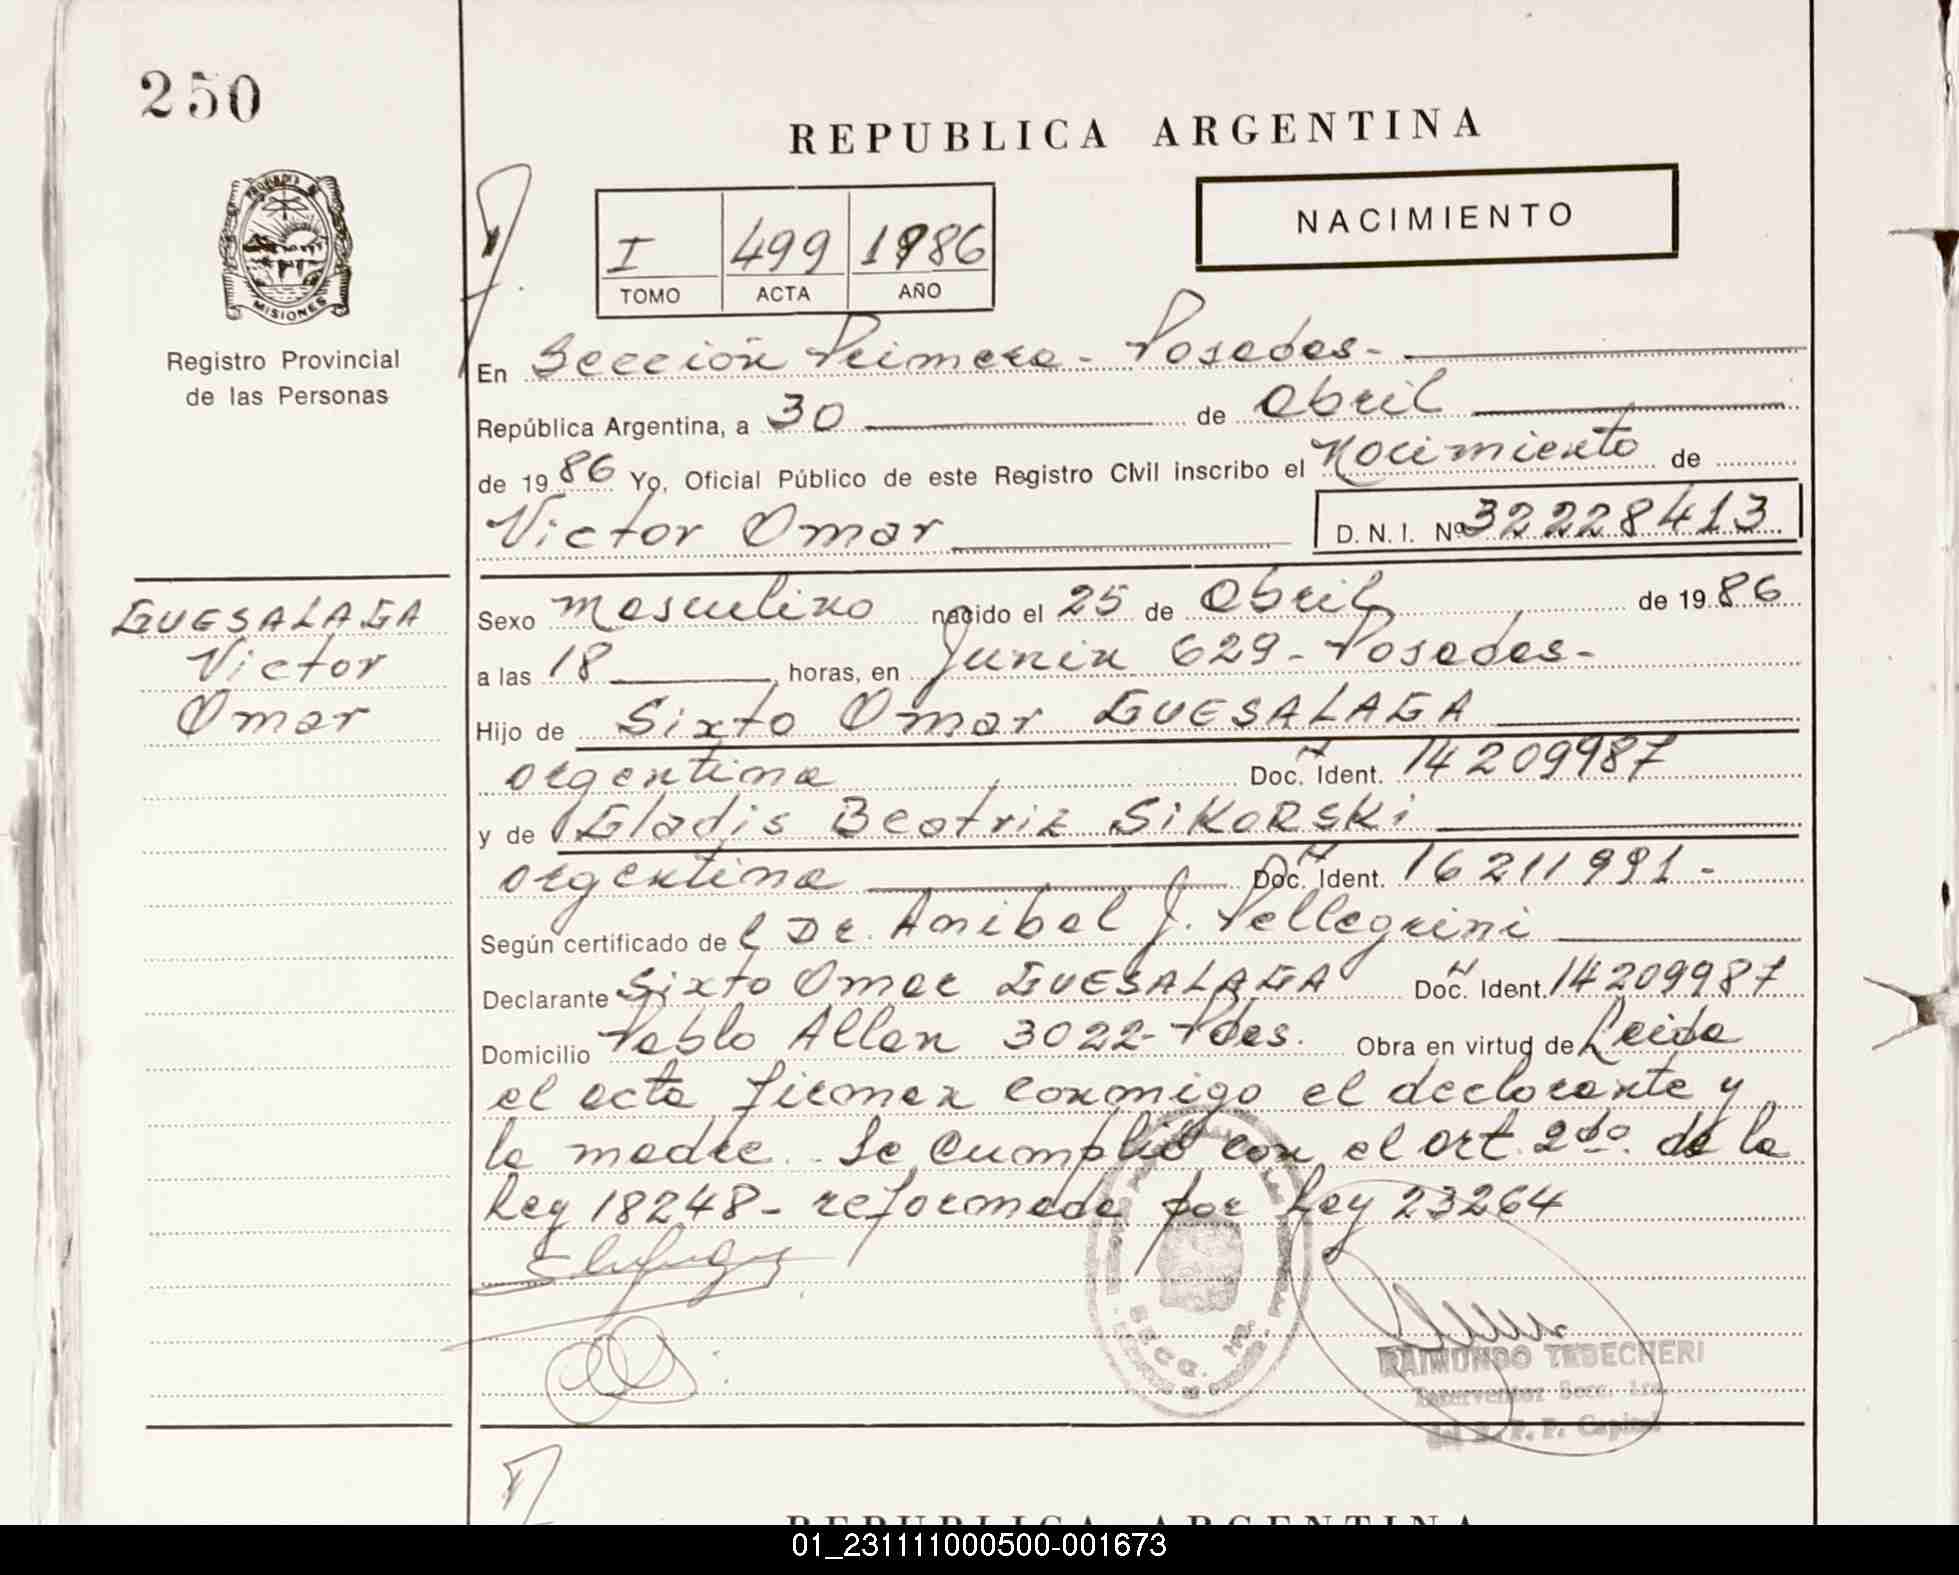 250
REPUBLICA ARGENTINA
NACIMIENTO
I 499 1986
TOMO ACTA AÑO
MISIONES
Registro Provincial
de las Personas
En Sección Primera - Posadas -
República Argentina, a 30 de abril
de 1986 Yo, Oficial Público de este Registro Civil inscribo el Nacimiento de
Victor Omar D. N. I. Nº 32228413
GUESALAGA
Victor
Omar
Sexo masculino nacido el 25 de abril de 1986
a las 18 horas, en Junin 629 - Posadas -
Hijo de Sixto Omar GUESALAGA
argentina Doc. Ident. 14209987
y de Gladis Beatriz SIKORSKI
argentina Doc. Ident. 16211991 -
Según certificado de l Dr. Anibal J. Pellegrini
Declarante Sixto Omar GUESALAGA Doc. Ident. 14209987
Domicilio Pablo Allan 3022 - Pdas. Obra en virtud de Leida
el acta firman conmigo el declarante y
la madre. - Se cumplió con el art. 2do. de la
Ley 18248 - reformada por Ley 23264
RAIMUNDO TEBECHERI
Interventor Secc. 1ra.
del R. P. P. Capital
REPUBLICA ARGENTINA
01_231111000500-001673